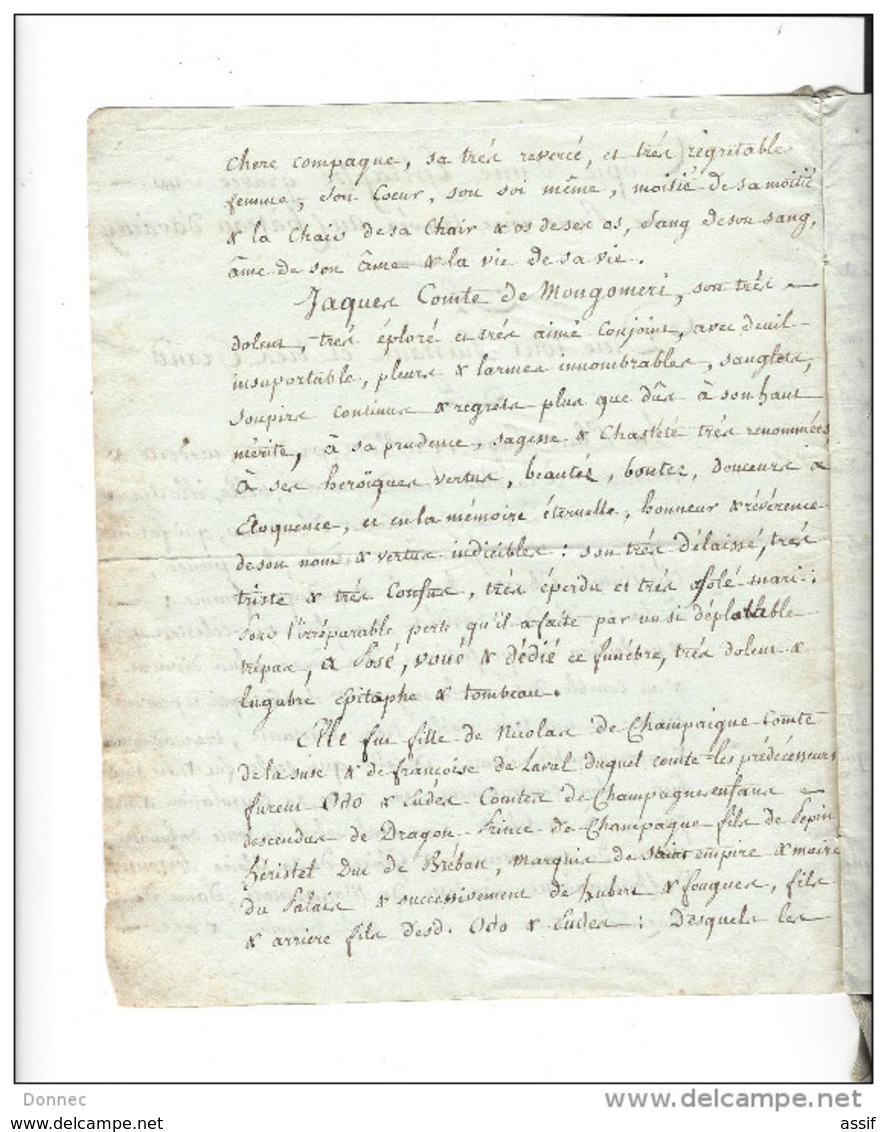 chere compagne, sa trés revercé, et trés regretable
femme, Son Coeur, son soi même, moitié de sa moitié
& la Chair de sa Chair & os de ses os, Sang de son sang,
âme de son âme & la vie de sa vie.
Jaques Comte de Mongomeri, son trés
dolent, trés éploré et trés aimé Conjoint, avec deuil
insuportable, pleurs & larmes innombrables, sanglots,
soupirs continus & regrets plus que dûs à son haut
mérite, à sa prudence, sagesse & Chasteté trés renommées
à ses heroïques vertus, beautés, bontez, douceurs &
Eloquence, et en la mémoire éternelle, honneur & révérence
de son nom & vertus indicibles : son trés délaissé, trés
triste & trés Confus, trés éperdu et trés afolé mari :
pour l'irréparable perte qu'il a faite par un si déplorable
trépas, a Posé, voué & dédié ce funébre, trés dolent &
lugubre Epitaphe & tombeau.
Elle fut fille de Nicolas de Champaigne Comte
de la suse & de françoise de Laval duquel comte les prédécesseurs
furent Odo & Eudes Comtes de Champagne enfans
descendus de Dragon Prince de Champagne fils de Pepin
héristel Duc de Bréban, Marquis de saint empire & maire
du Palais & successivement de hubert & fougues, fils
& arriere fils desd. Odo & Eudes : Desquels les
Donnec
www.delcampe.net
assif